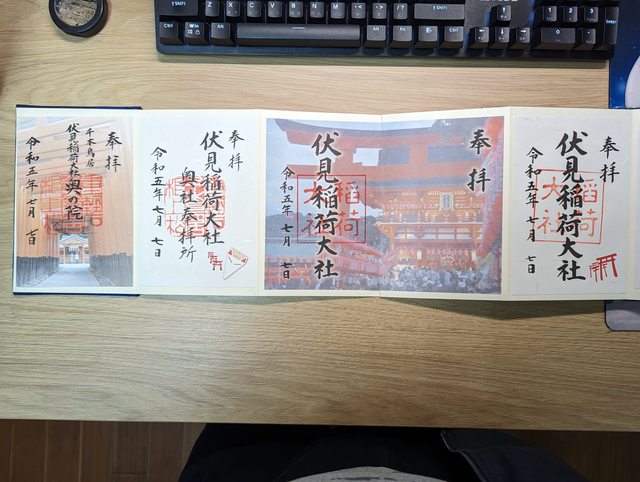 奉拝
千本鳥居
伏見稲荷大社奥の院
令和五年 七月 七日
奉拝
伏見稲荷大社
奥社奉拝所
令和五年 七月 七日
奉拝
伏見稲荷大社
令和五年 七月 七日
奉拝
伏見稲荷大社
令和五年 七月 七日
稲荷
大社
稲荷
大社
Shift
Z
X
C
V
B
N
M
Shift
Ctrl
Win
Alt
Alt
Fn
Ctrl
1
2
3
0
Enter